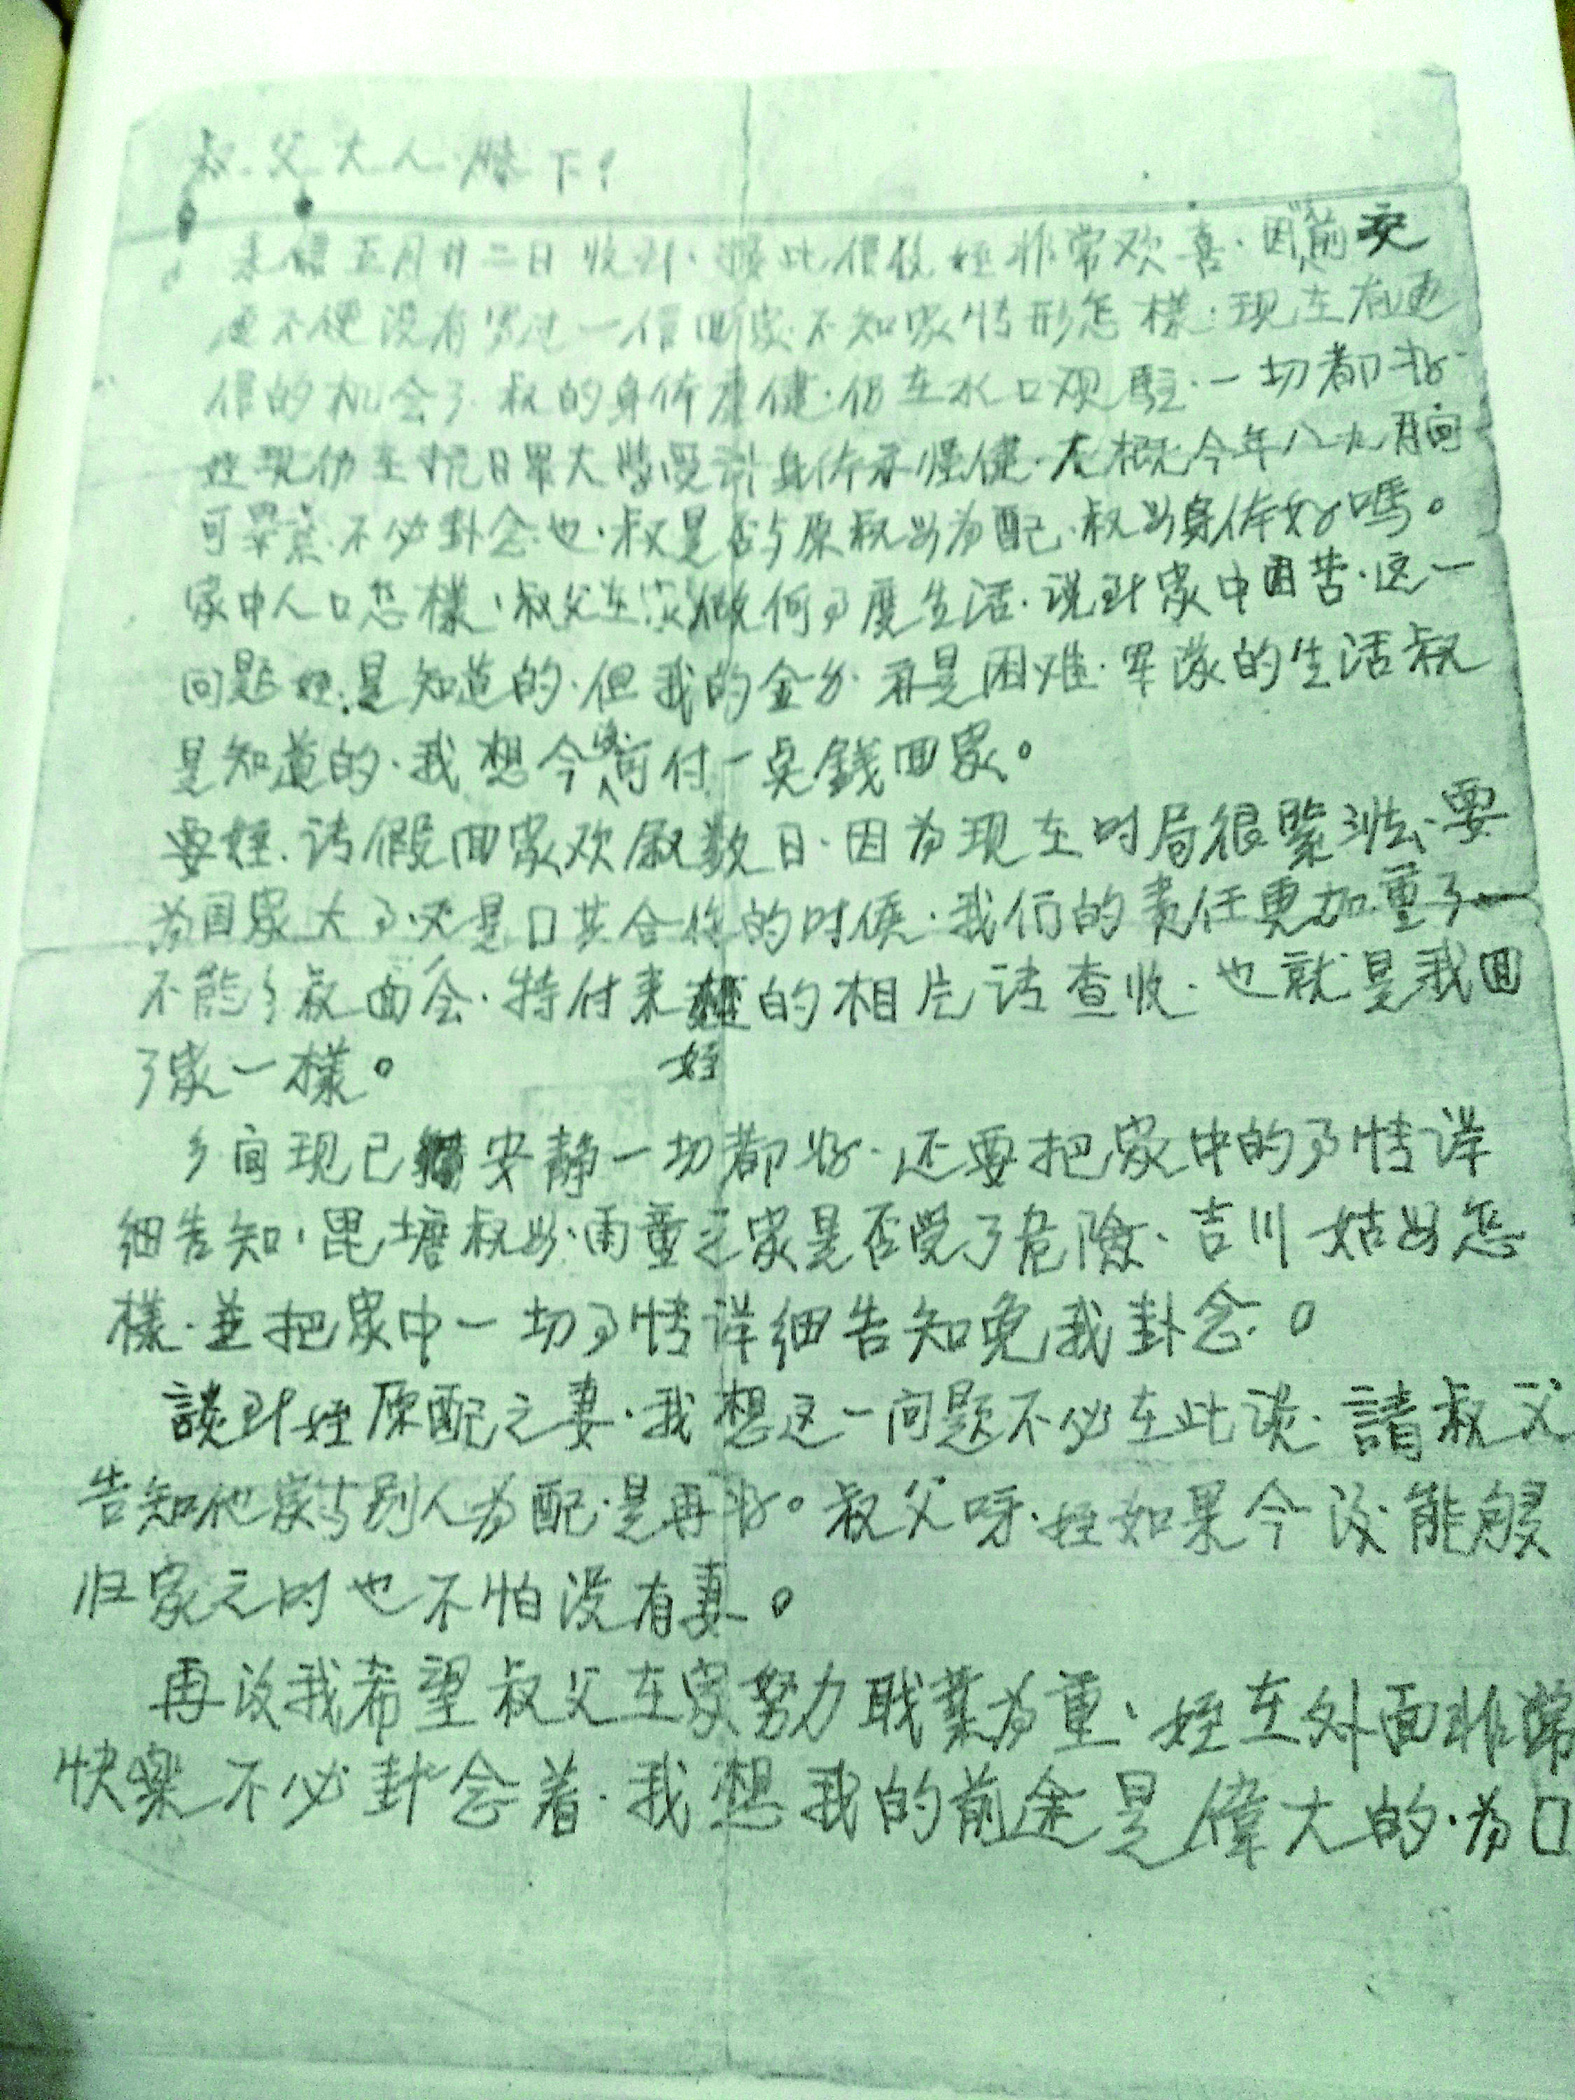 叔父大人膝下：
来信五月廿二日收到·接此信后姪非常欢喜·因从前交
通不便没有写过一信回家·不知家情形怎樣·现在有通
信的机会了·叔的身体康健·仍在水口观駐·一切都好·
姪现仍在抗日軍大学受训身体亦强健·大概今年八九月间
可畢業·不必卦念也·叔是否与原叔母为配·叔母身体好嗎。
家中人口怎樣·叔父在家做何事度生活·说到家中困苦·这一
问题姪是知道的·但我的金分·再是困难·軍隊的生活叔
是知道的·我想今後可付一点錢回家。
要姪·请假回家欢敘数日·因为现在时局很緊張·要
为国家大事·又是口共合作的时候·我们的责任更加重了一
不能与叔面会·特付来姪的相片请查收·也就是我回
了家一樣。 姪
乡间现已安静一切都好·还要把家中的事情详
细告知·毘塘叔母·雨童之家是否受了危險·吉川姑母怎
樣·並把家中一切事情详细告知免我卦念。
談到姪原配之妻·我想这一问题不必在此谈·請叔父
告知他家与别人为配·是再好。叔父呀·姪如果今没能够
归家之时也不怕没有妻。
再没我希望叔父在家努力職業为重·姪在外面非常
快樂不必卦念着·我想我的前途是偉大的·为口